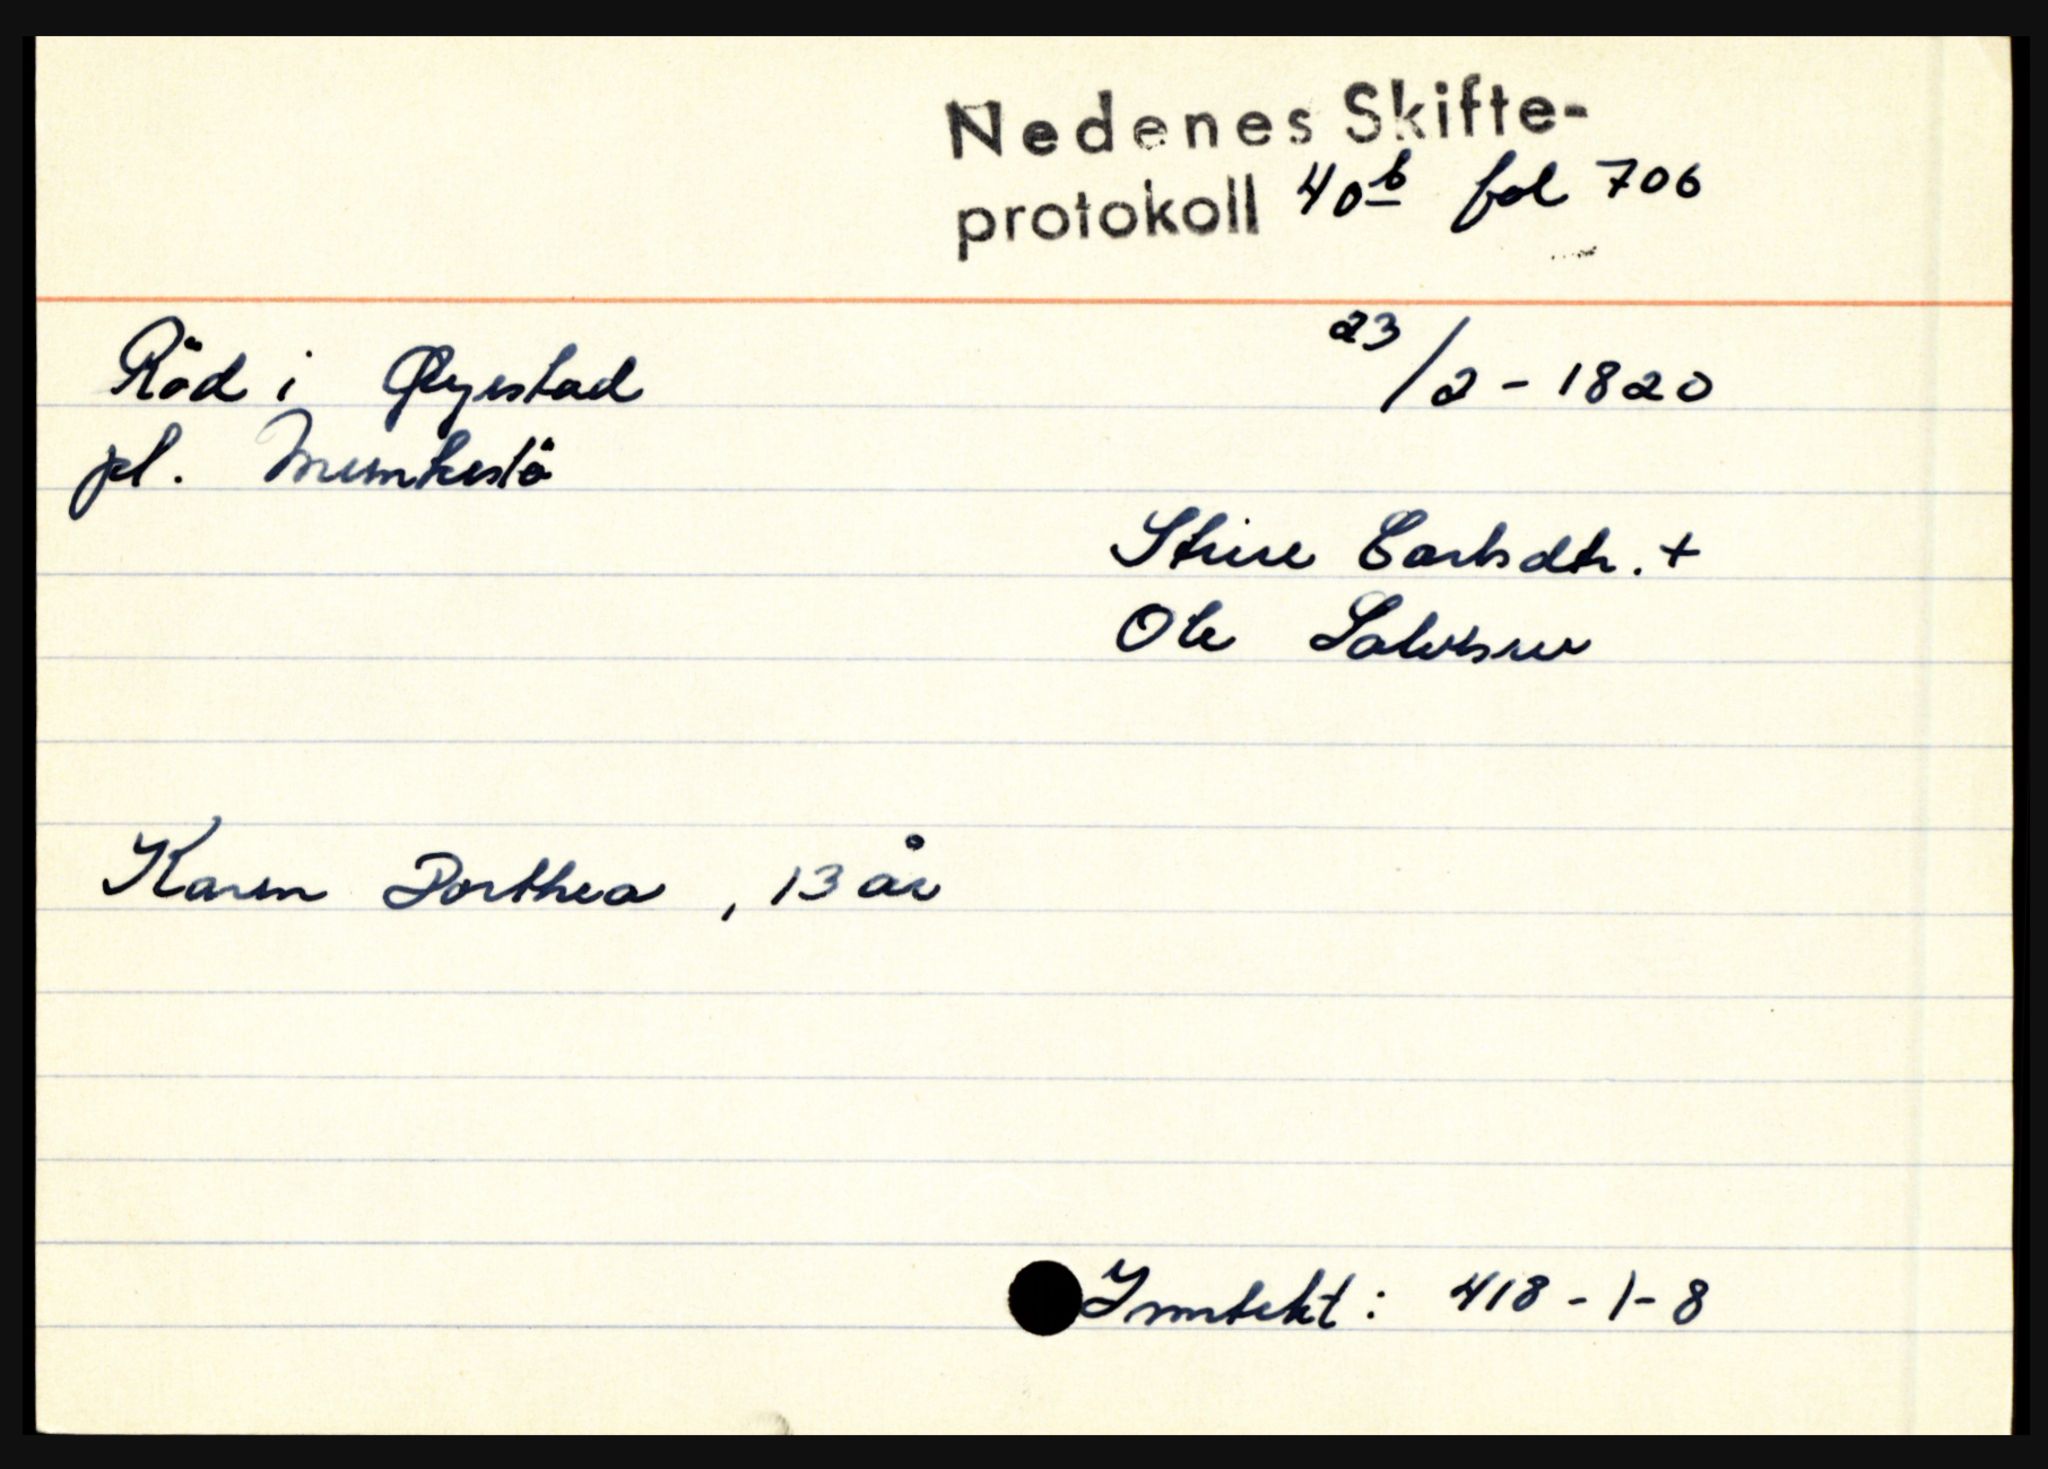 Nedenes Skifte-
protokoll 40b fol 706
Röd i Øyestad 23/2 - 1820
pl. Munkestö
Stine Carlsdtr. +
Ole Salvesen
Karen Dorthea, 13 år
Inntekt: 418 - 1 - 8